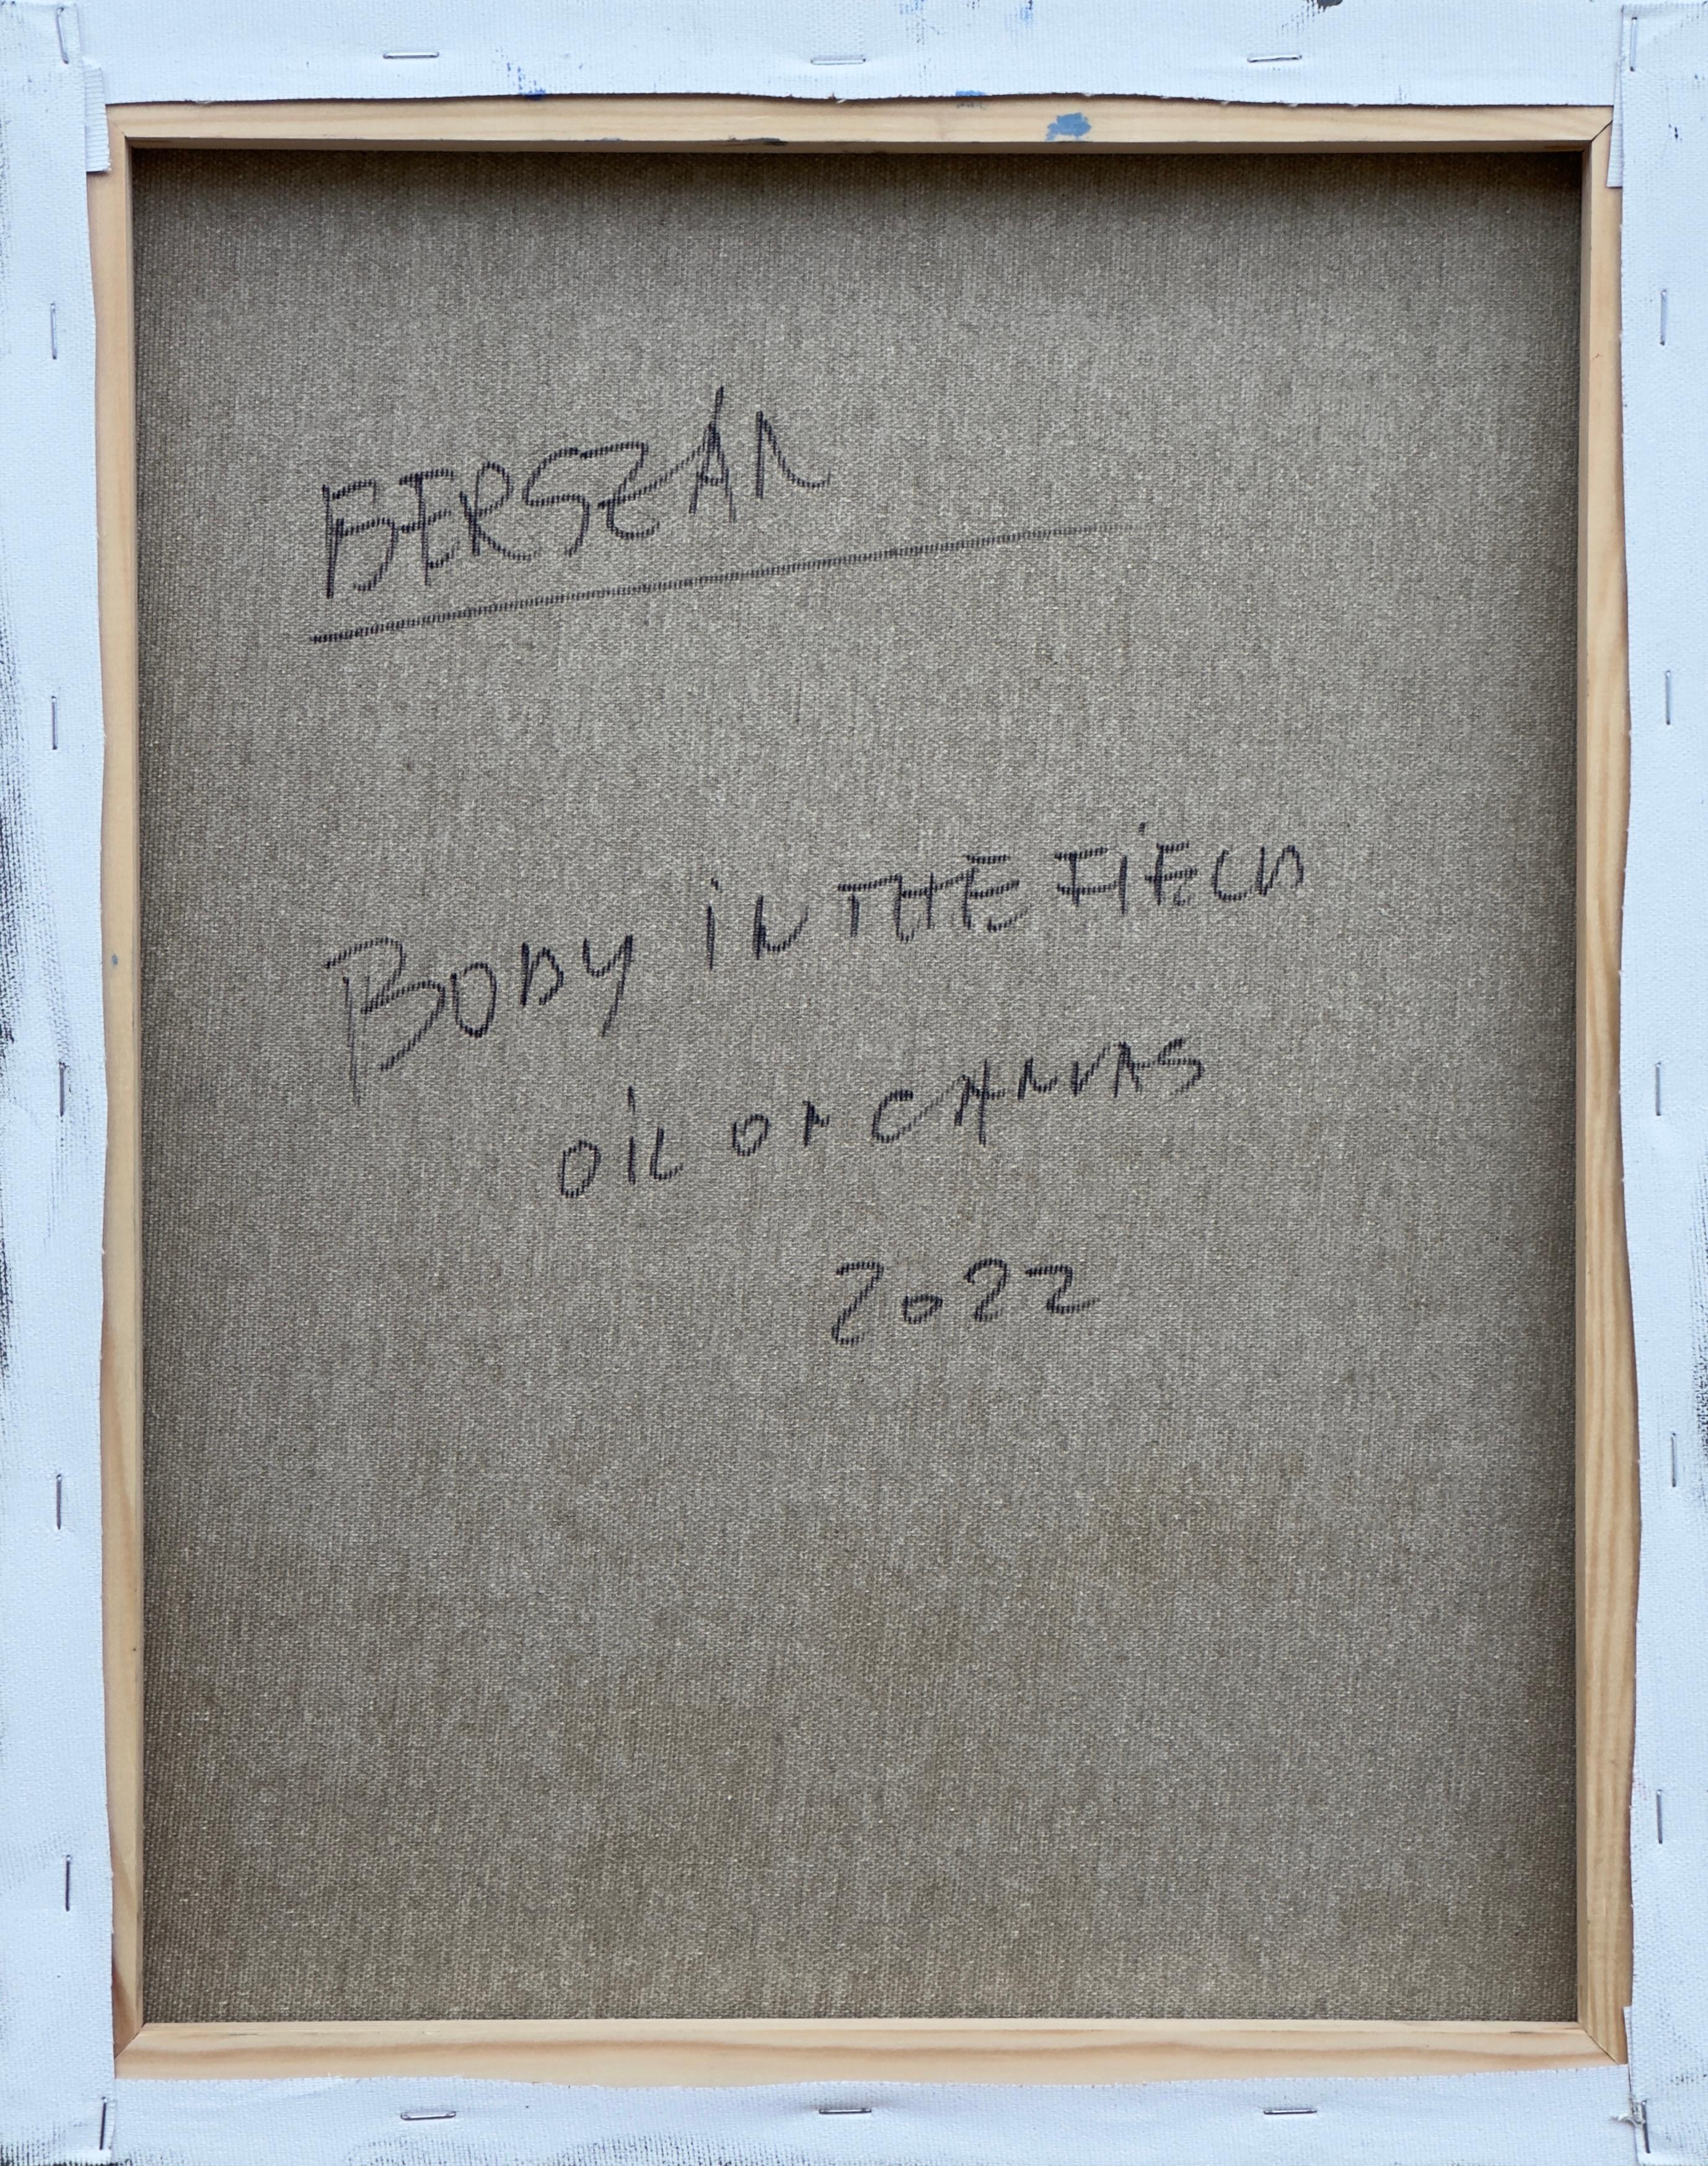 BERSZÁN
BODY iN THE FiELD
OiL ON CANVAS
2022